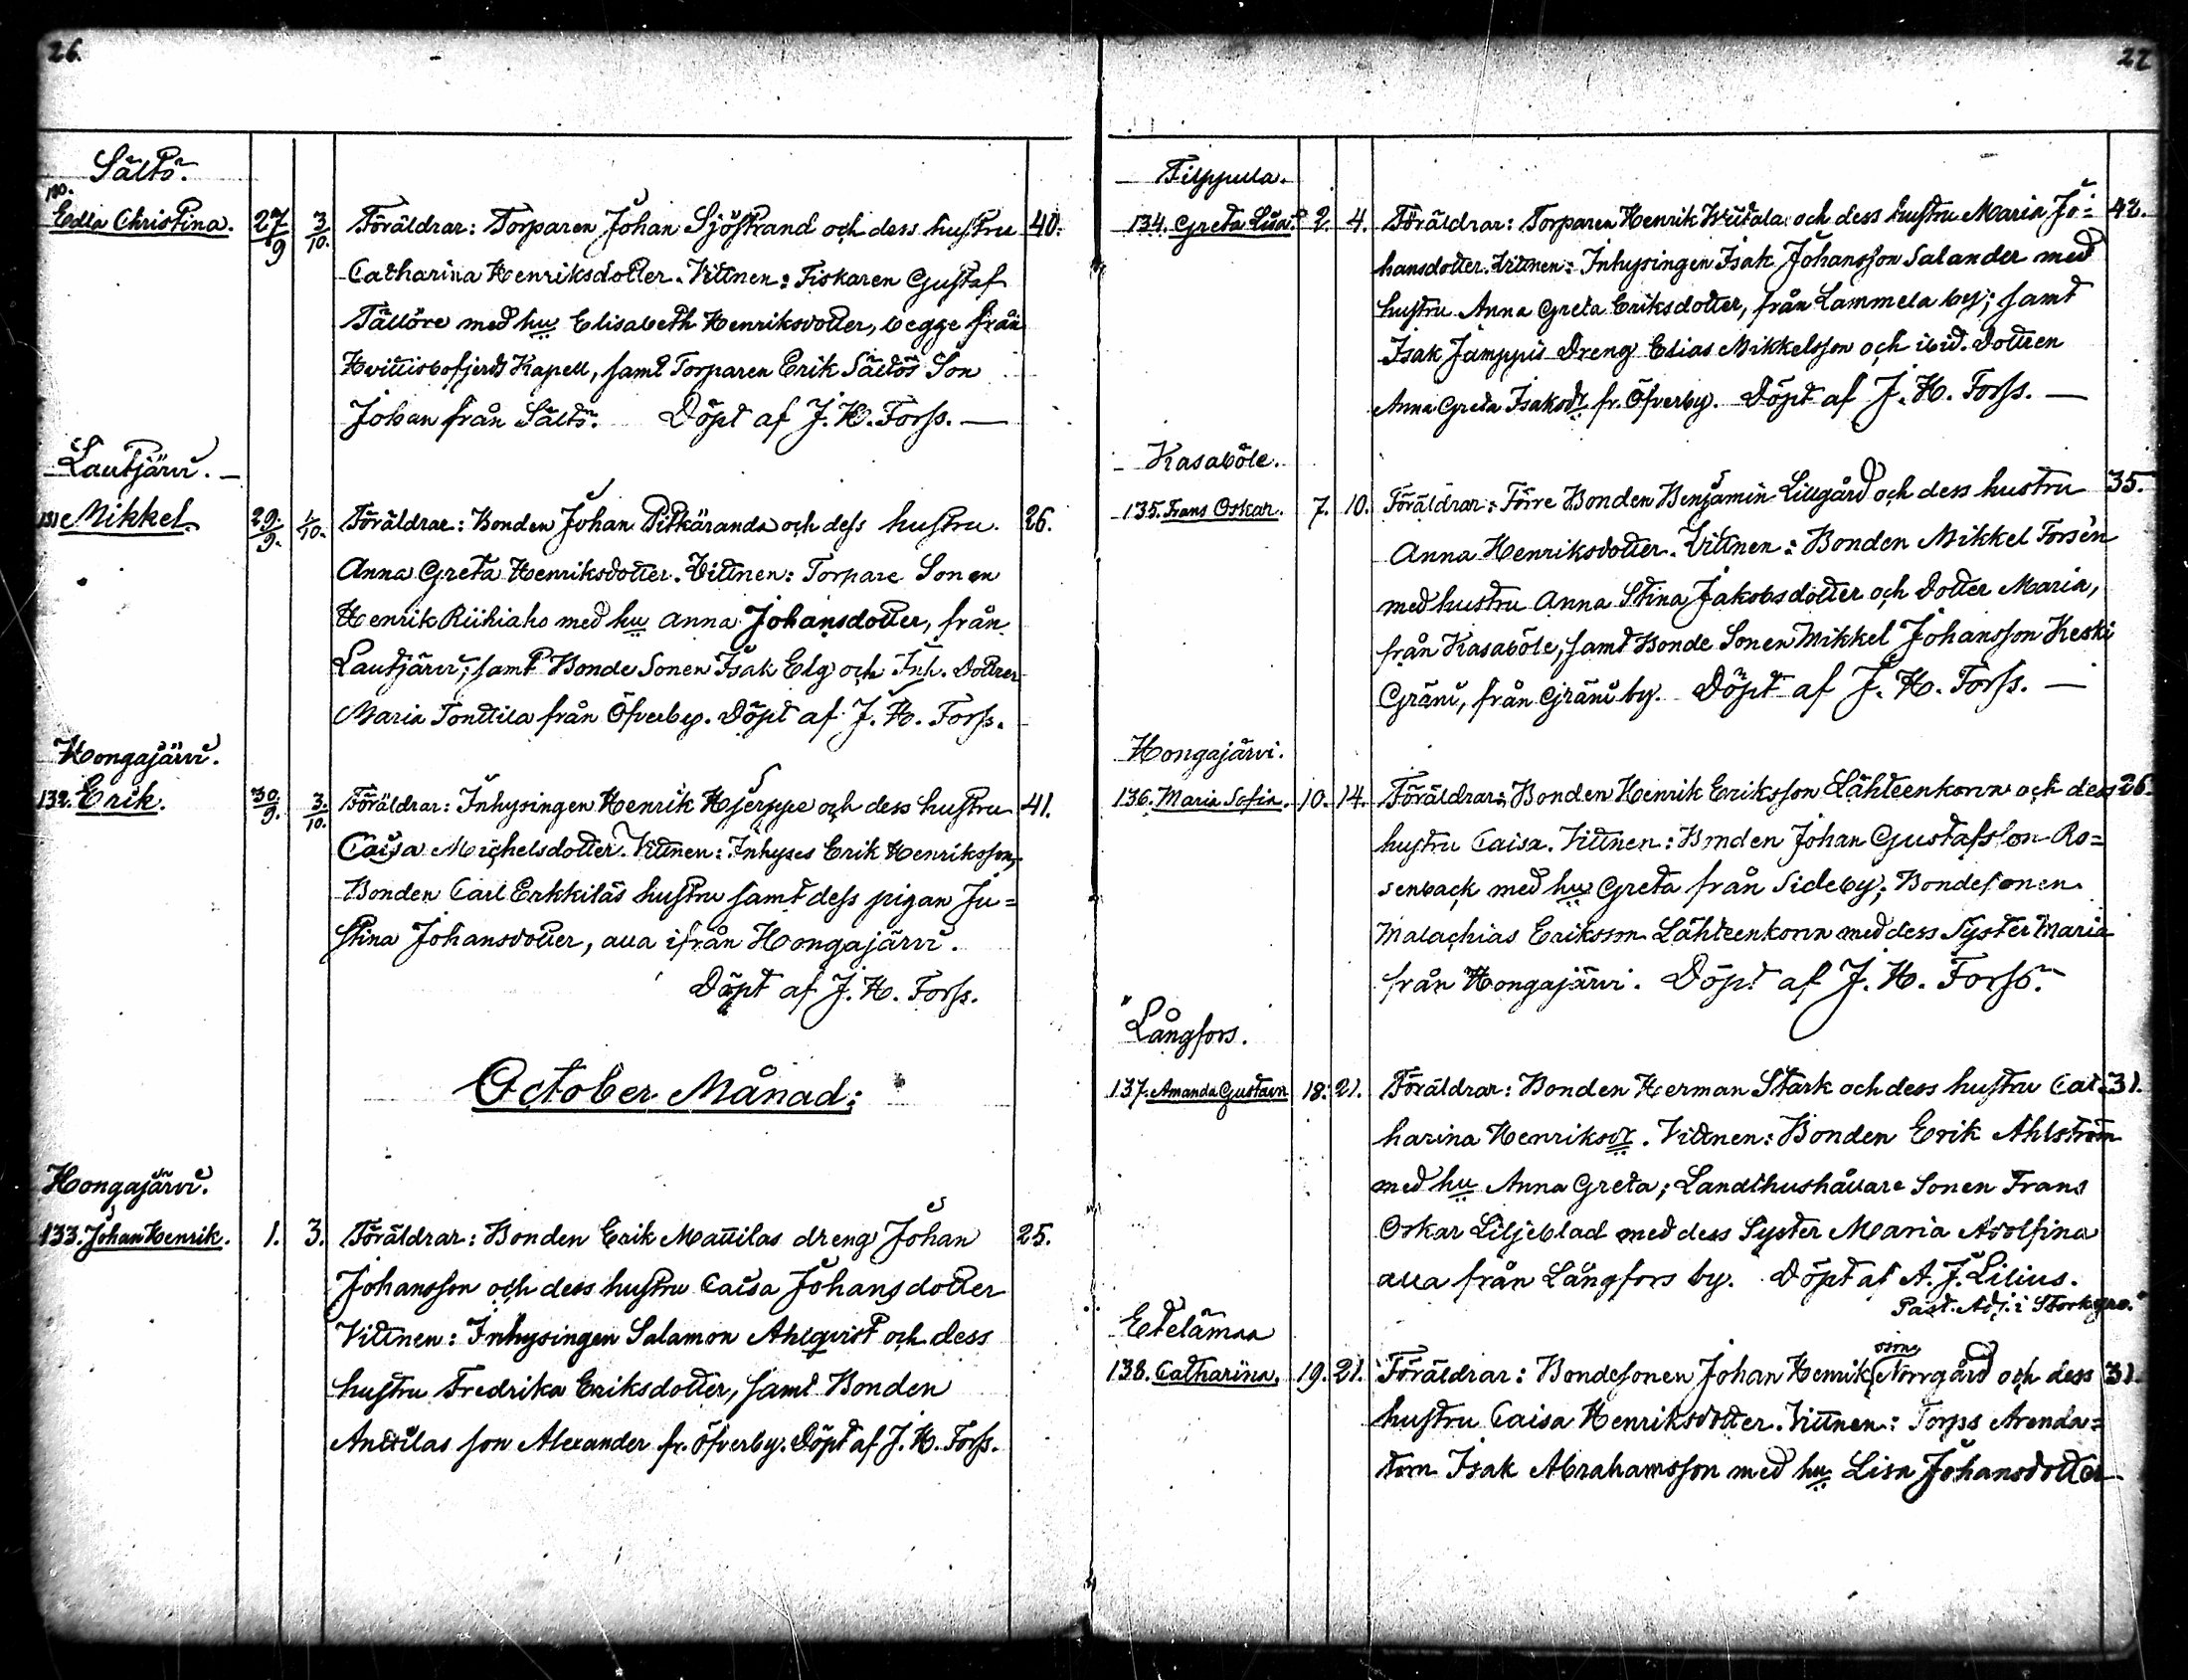 26.
Sältö.
130.
Edla Christina. 27/9 3/10. Föräldrar: Torparen Johan Sjöstrand och dess hustru 40.
Catharina Henriksdotter. Vittnen: Fiskaren Gustaf
Tällöre med hu Elisabeth Henriksdotter, begge från
Hvittisbofjerds Kapell, samt Torparen Erik Sältös Son
Johan från Sältö. Döpt af J. H. Forss. —
Lautjärvi. —
131 Mikkel. 29/9. 1/10. Föräldrar: Bonden Johan Pitkäranda och dess hustru 26.
Anna Greta Henriksdotter. Vittnen: Torpare Sonen
Henrik Riihiaho med hu Anna Johansdotter, från
Lautjärvi; samt Bonde Sonen Isak Elg och Inh. Dottren
Maria Tonttila från Öfverby. Döpt af J. H. Forss.
Hongajärvi.
132. Erik. 30/9. 3/10. Föräldrar: Inhysingen Henrik Hjerppe och dess hustru 41.
Caisa Michelsdotter. Vittnen: Inhyses Erik Henriksson,
Bonden Carl Erkkiläs hustru samt dess pigan Ju=
stina Johansdotter, alla ifrån Hongajärvi.
Döpt af J. H. Forss.
October Månad:
Hongajärvi.
133. Johan Henrik. 1. 3. Föräldrar: Bonden Erik Mattilas dreng Johan 25.
Johansson och dess hustru Caisa Johansdotter
Vittnen: Inhysingen Salamon Ahlqvist och dess
hustru Fredrika Eriksdotter, samt Bonden
Anttilas son Alexander fr. Öfverby. Döpt af J. H. Forss.
27
Filppula.
134. Greta Lisa. 2. 4. Föräldrar: Torparen Henrik Wiitala och dess hustru Maria Jo= 42.
hansdotter. Vittnen: Inhysingen Isak Johansson Salander med
hustru Anna Greta Eriksdotter, från Lammela by; samt
Isak Jamppis Dreng Elias Mikkelsson och ibid. Dottren
Anna Greta Isaksdr fr. Öfverby. Döpt af J. H. Forss. —
Kasaböle.
135. Frans Oskar. 7. 10. Föräldrar: Förre Bonden Benjamin Lillgård och dess hustru 35.
Anna Henriksdotter. Vittnen: Bonden Mikkel Forsén
med hustru Anna Stina Jakobsdotter och dotter Maria,
från Kasaböle, samt Bonde Sonen Mikkel Johansson Keski
Gräni, från Gräni by. Döpt af J. H. Forss. —
Hongajärvi.
136. Maria Sofia. 10. 14. Föräldrar: Bonden Henrik Eriksson Lähteenkorva och dess 26.
hustru Caisa. Vittnen: Bonden Johan Gustafsson Ro=
senback med hu Greta från Sideby; Bondesonen
Malachias Eriksson Lähteenkorva med dess Syster Maria
från Hongajärvi. Döpt af J. H. Forss.
Långfors.
137. Amanda Gustava 18. 21. Föräldrar: Bonden Herman Stark och dess hustru Cat= 31.
harina Henriksdr. Vittnen: Bonden Erik Ahlström
med hu Anna Greta; Landthushållare Sonen Frans
Oskar Liljeblad med dess Syster Maria Adolfina
alla från Långfors by. Döpt af A. J. Lilius.
Past. Adj. i Storkyro.
Etelämaa
138. Catharina. 19. 21. Föräldrar: Bondesonen Johan Henriksson Norrgård och dess 31
hustru Caisa Henriksdotter. Vittnen: Torps Arenda=
torn Isak Abrahamsson med hu Lisa Johansdotter